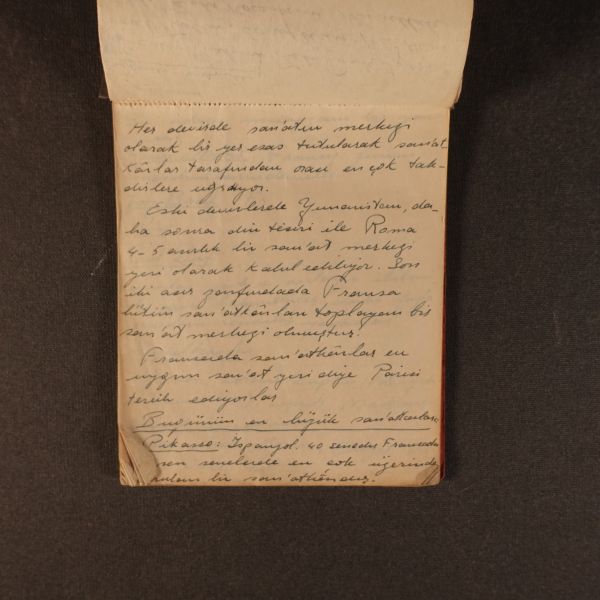 Her devirde san'atın merkezi
olarak bir yer esas tutularak san'at
kârlar tarafından orası en çok tak-
dirlere uğrayor.
Eski devirlerde Yunanistan, da-
ha sonra din tesiri ile Roma
4-5 asırlık bir san'at merkezi
yeri olarak kabul ediliyor. Son
iki asır zarfındada Fransa
bütün san'atkârları toplayan bir
san'at merkezi olmuştur.
Fransada san'atkârlar en
uygun san'at yeri diye Parisi
tercih ediyorlar
Bugünün en büyük san'atkarları
Pikasso: Ispanyol. 40 senedir Fransada
son senelerde en çok üzerinde
bir san'atkârdır.